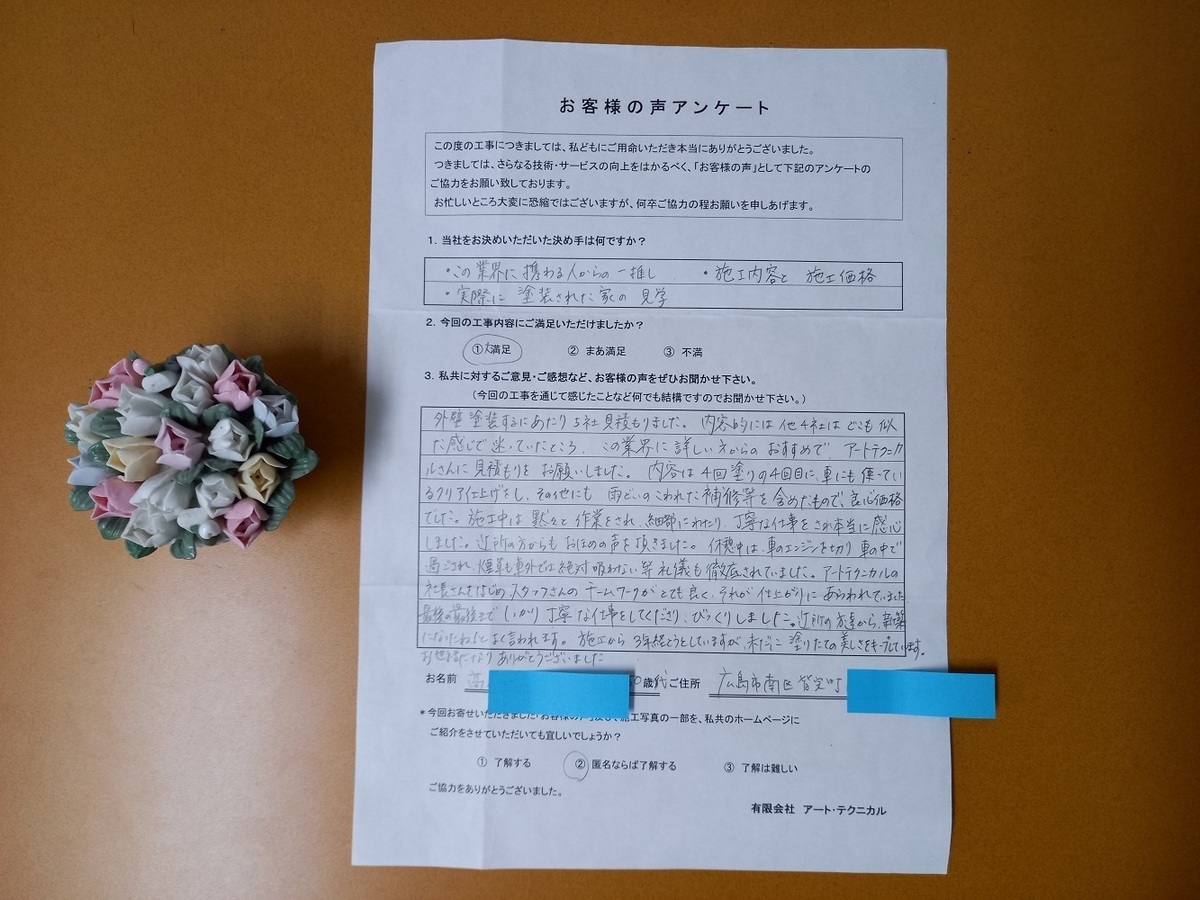 お客様の声アンケート
この度の工事につきましては、私どもにご用命いただき本当にありがとうございました。
つきましては、さらなる技術・サービスの向上をはかるべく、「お客様の声」として下記のアンケートの
ご協力をお願い致しております。
お忙しいところ大変に恐縮ではございますが、何卒ご協力の程お願いを申しあげます。
1. 当社をお決めいただいた決め手は何ですか?
・この業界に携わる人からの一推し ・施工内容と 施工価格
・実際に 塗装された家の 見学
2. 今回の工事内容にご満足いただけましたか?
① 大満足 ② まあ満足 ③ 不満
3. 私共に対するご意見・ご感想など、お客様の声をぜひお聞かせ下さい。
(今回の工事を通じて感じたことなど何でも結構ですのでお聞かせ下さい。)
外壁塗装するにあたり5社見積もりました。内容的には他4社はどこも似
た感じで迷っていたところ、この業界に詳しい方からのおすすめで アートテクニカ
ルさんに見積もりをお願いしました。内容は4回塗りの4回目に、車にも使ってい
るクリア仕上げをし、その他にも 雨どいのこわれた補修等を含めたもので、良心価格
でした。施工中は黙々と作業をされ、細部にわたり、丁寧な仕事をされ本当に感心
しました。近所の方からもおほめの声を頂きました。休憩中は、車のエンジンを切り 車の中で
過ごされ、煙草も車外では絶対吸わない等礼儀も徹底されていました。アートテクニカルの
社長さんをはじめ、スタッフさんの チームワークがとても良く、それが仕上がりにあらわれていました
最後の最後まで しっかり丁寧な仕事をしてくださり、びっくりしました。近所の友達から、新築
になったね!とよく言われます。施工から 3年経とうとしていますが、未だに 塗りたての美しさをキープしています。
お世話になり ありがとうございました
お名前 0歳代 ご住所 広島市南区皆実町
*今回お寄せいただきました「お客様の声」及び、施工写真の一部を、私共のホームページに
ご紹介をさせていただいても宜しいでしょうか?
① 了解する ② 匿名ならば了解する ③ 了解は難しい
ご協力をありがとうございました。
有限会社 アート・テクニカル